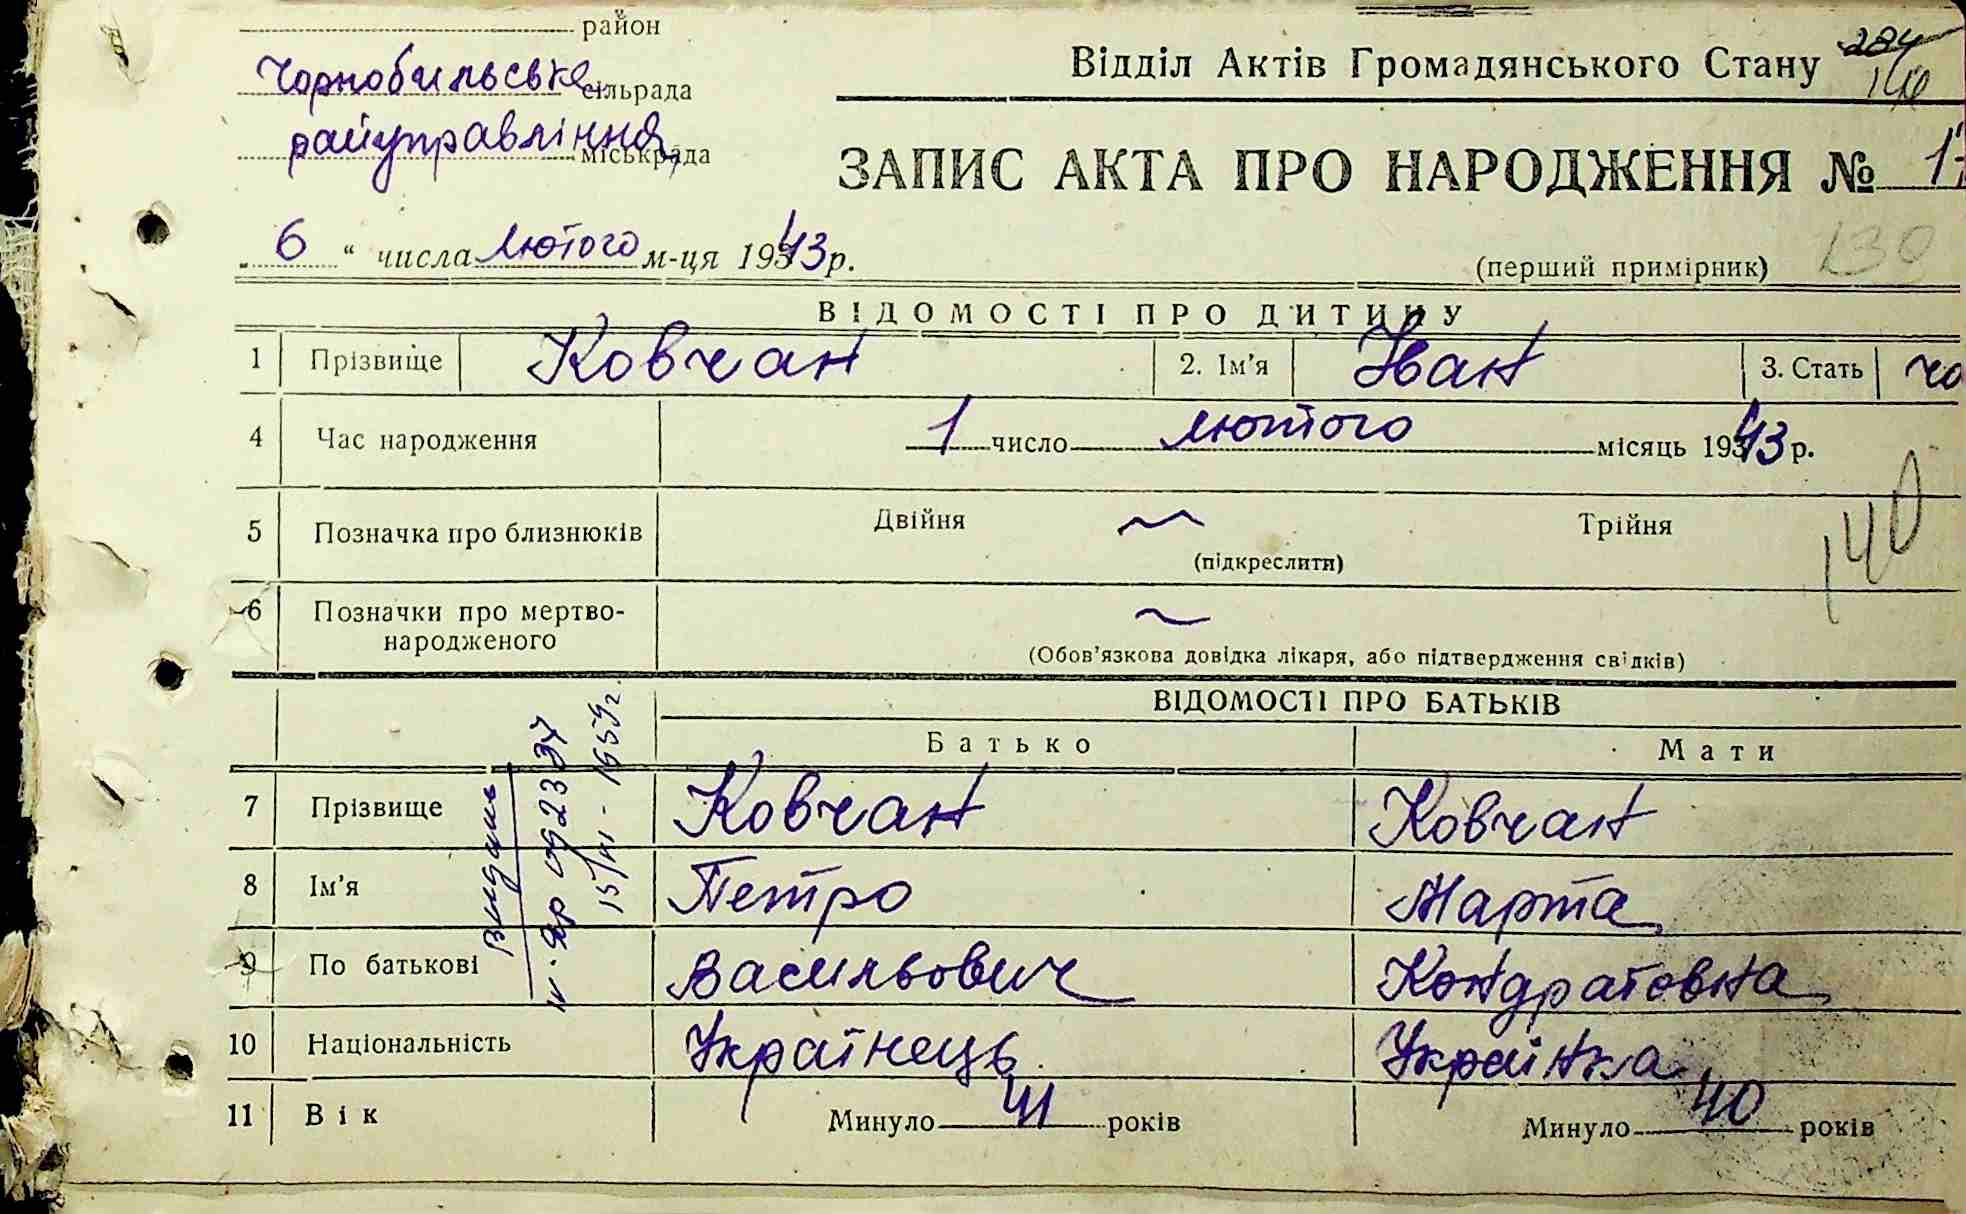 район
Чорнобильське сільрада
райуправління міськрада
Відділ Актів Громадянського Стану
ЗАПИС АКТА ПРО НАРОДЖЕННЯ №
130
„ 6 “ числа лютого м-ця 1943 р.
(перший примірник)
ВІДОМОСТІ ПРО ДИТИНУ
1 Прізвище Ковчан 2. Ім'я Іван 3. Стать чо
4 Час народження 1 число лютого місяць 1943 р.
140
5 Позначка про близнюків Двійня ~ Трійня
(підкреслити)
6 Позначки про мертво-
народженого ~
(Обов'язкова довідка лікаря, або підтвердження свідків)
ВІДОМОСТІ ПРО БАТЬКІВ
Батько Мати
7 Прізвище Ковчан Ковчан
8 Ім'я Петро Марта
9 По батькові Васильович Кондратовна
10 Національність Українець Українка
11 Вік Минуло 41 років Минуло 40 років